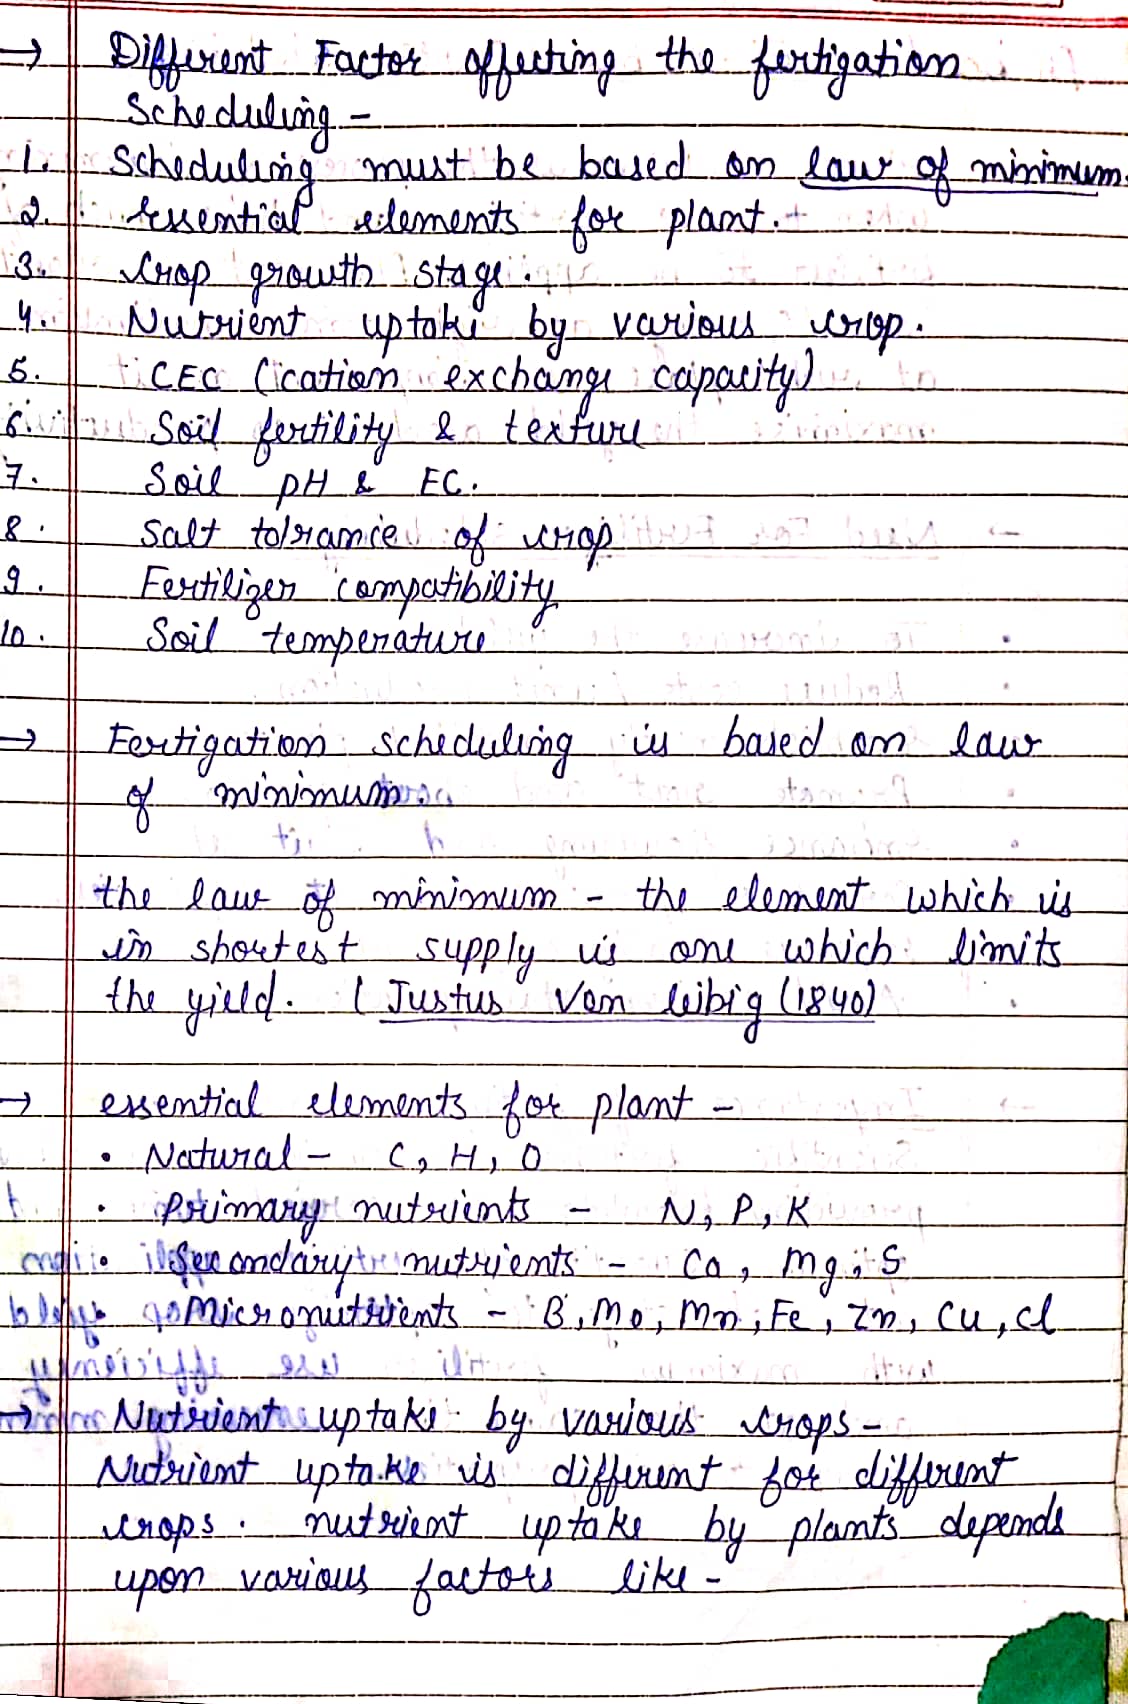 → Different Factor affecting the fertigation
Scheduling -
1. Scheduling must be based on law of minimum.
2. essential elements for plant.
3. crop growth stage.
4. Nutrient uptake by various crop.
5. CEC (cation exchange capacity)
6. Soil fertility & texture
7. Soil pH & EC.
8. Salt tolrance of crop
9. Fertilizer compatibility
10. Soil temperature
→ Fertigation scheduling is based on law
of minimum.
the law of minimum - the element which is
in shortest supply is one which limits
the yield. ( Justus Von leibig (1840)
→ essential elements for plant -
• Natural - C, H, O
• Primary nutrients - N, P, K
• Secondary nutrients - Ca, Mg, S
Micronutrients - B, Mo, Mn, Fe, Zn, Cu, Cl
→ Nutrient uptake by various crops -
Nutrient uptake is different for different
crops. nutrient uptake by plants depends
upon various factors like -